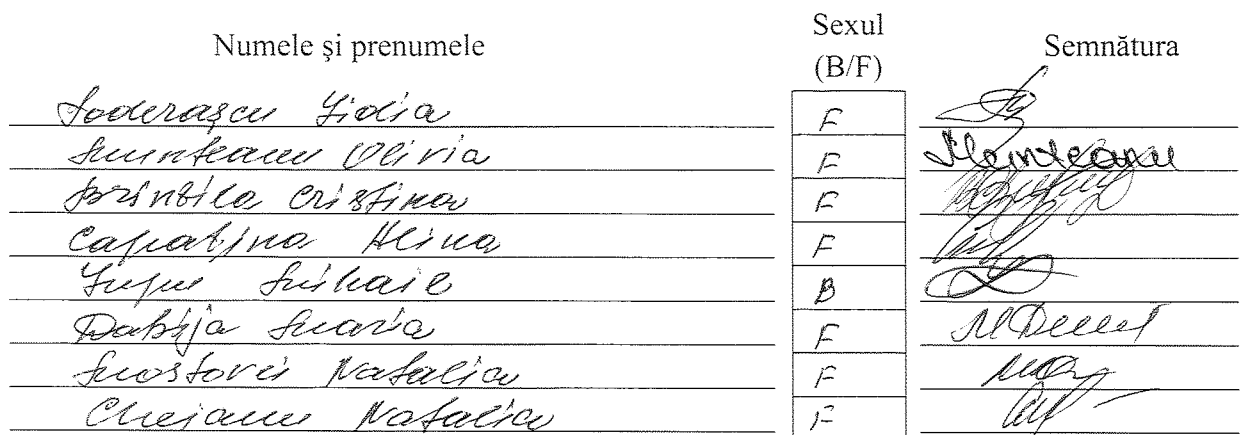 Numele şi prenumele Sexul (B/F) Semnătura
Lidia F
Munteanu Olivia F Munteanu
Brînbila Cristina F
Capaţina Alina F
Lupu Mihail B
Dabija Maria F
Mostovei Natalia F
Chejanu Natalia F